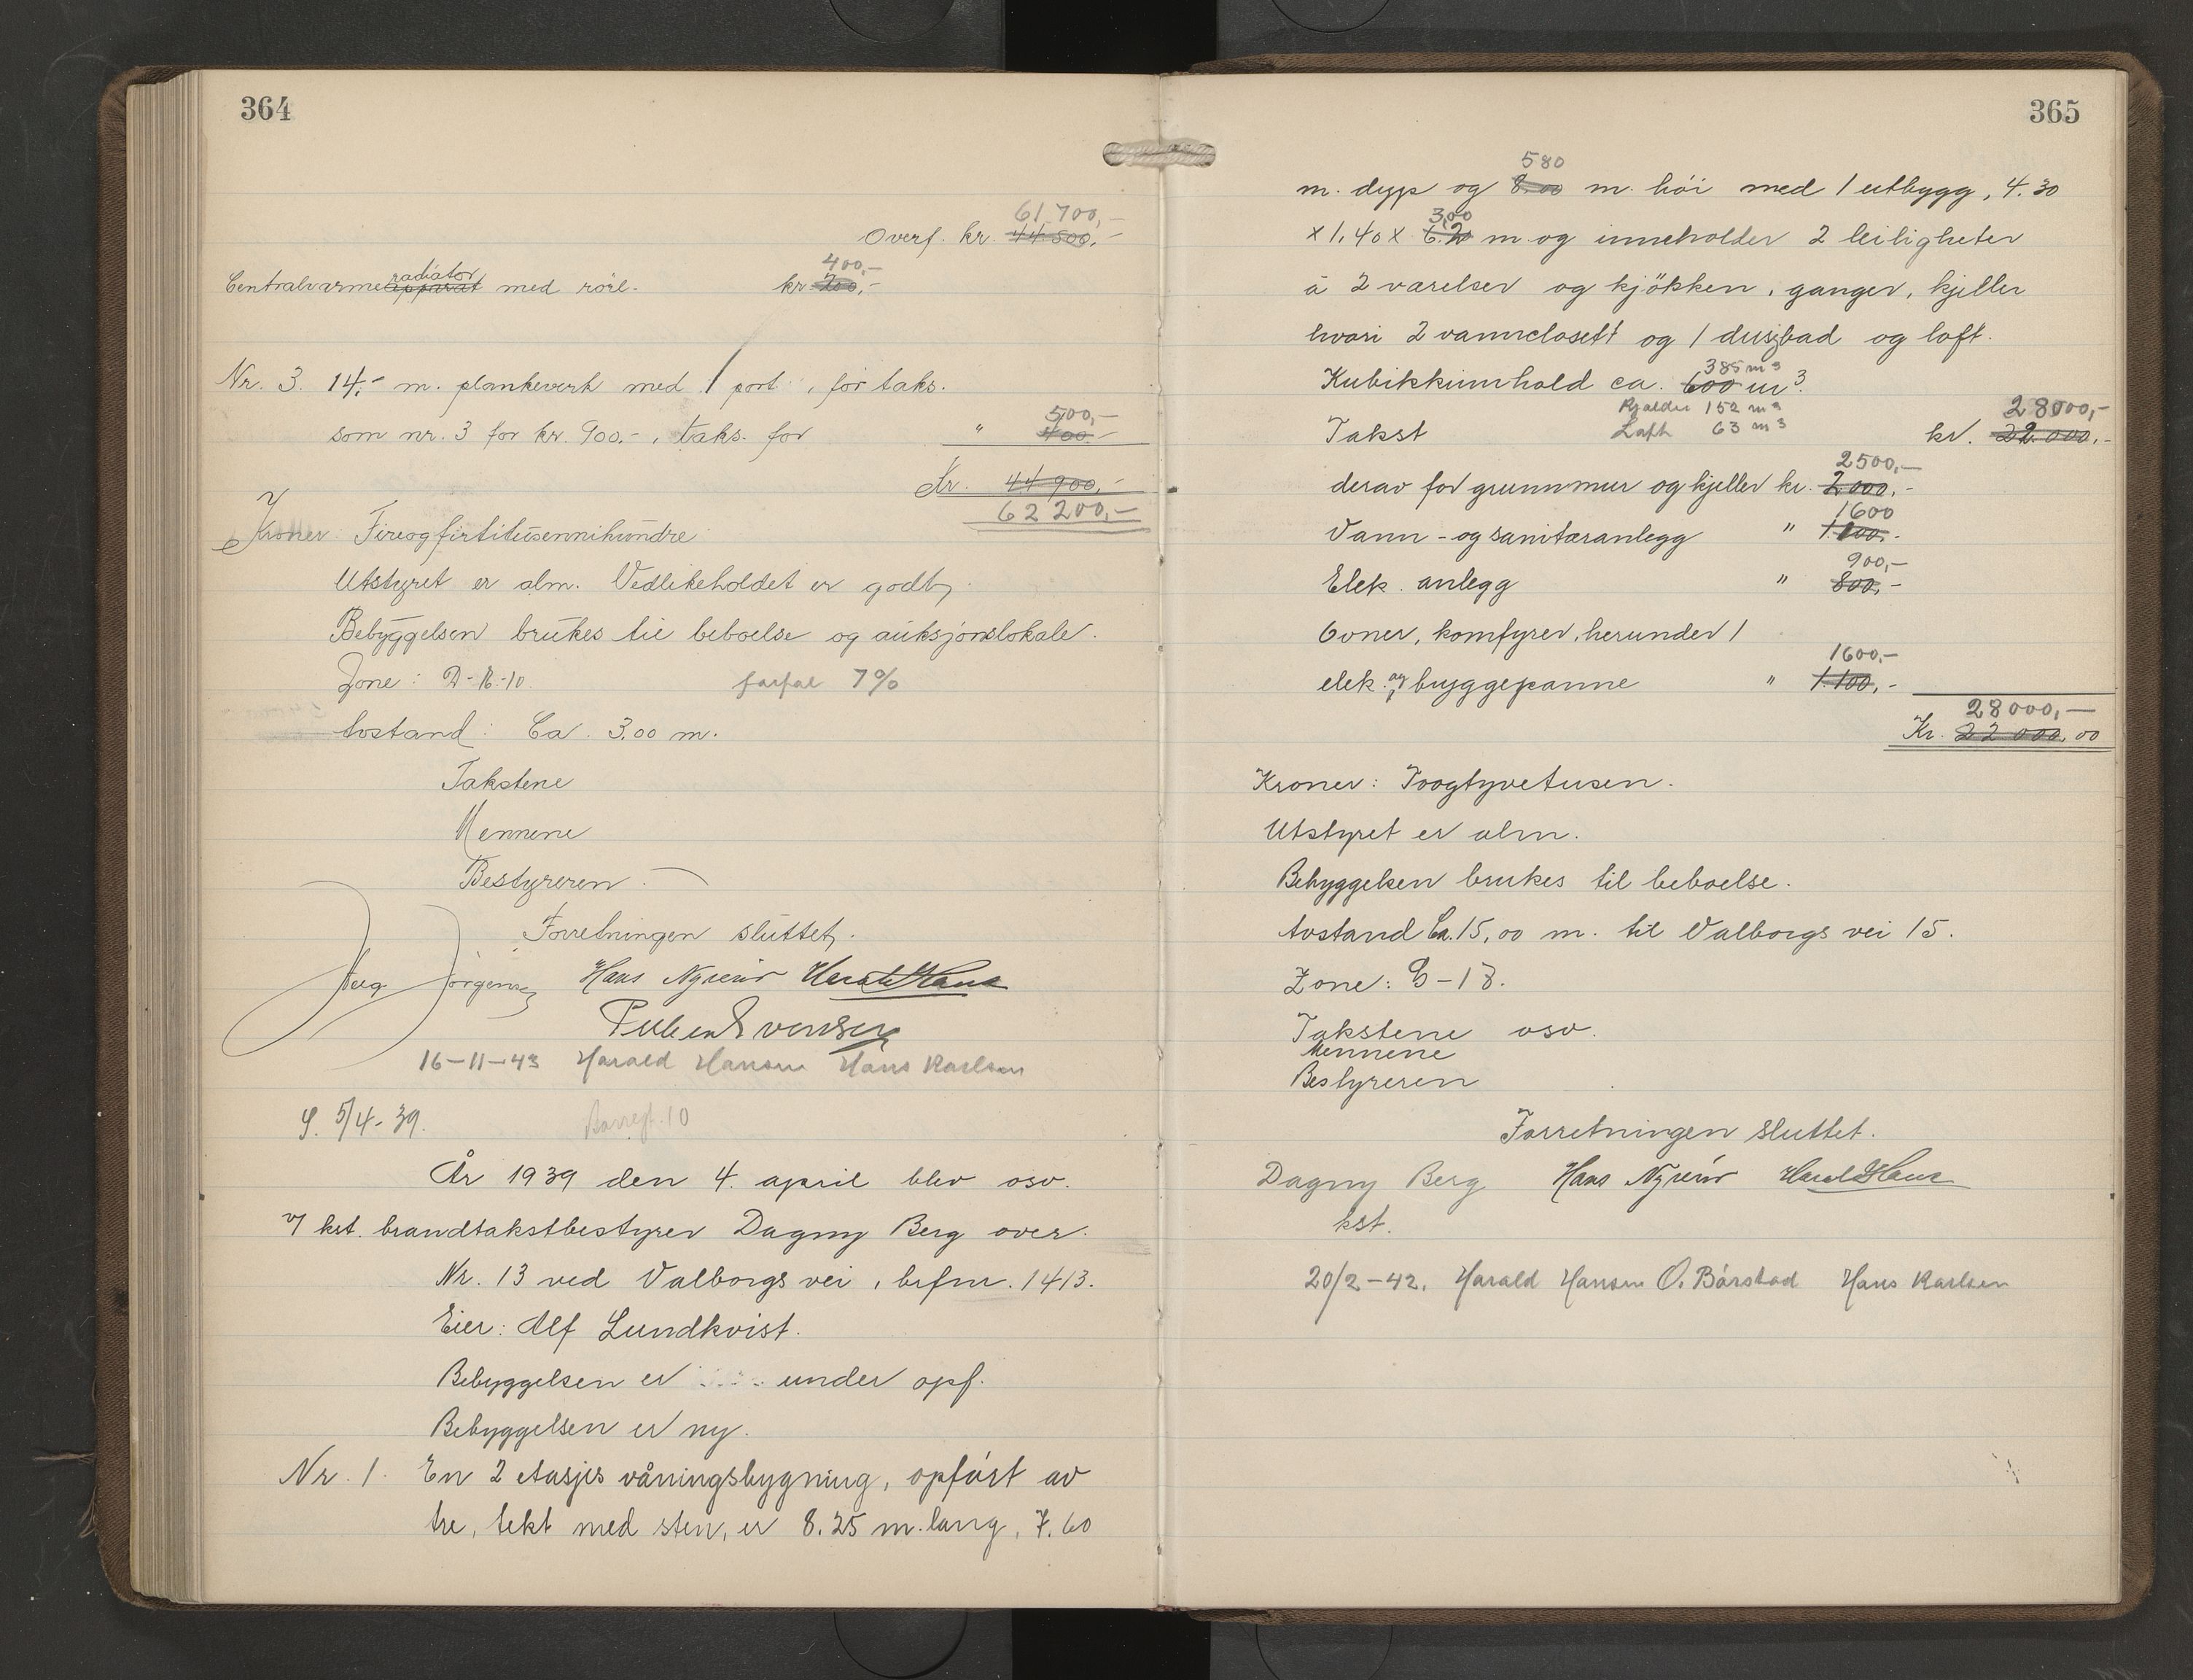 364
61 700,-
Overf. kr. 44 500,-
radiator 400,-
Centralvarmeapparat med rörl. kr. 200,-
Nr. 3. 14,- m. plankeverk med 1 port, før taks.
500,-
som nr. 3 for kr. 900.-, taks. for " 400.-
Kr. 44 900,-
62 200,-
Kroner Fireogfirtitusennihundre
Utstyret er alm. Vedlikeholdet er godt,
Bebyggelsen brukes til beboelse og auksjonslokale.
Zone: D-16-10. forfal 7%
Avstand: Ca. 3.00 m.
Takstene
Mennene
Bestyreren
Forretningen sluttet.
Jörgensen Hans Nyreiv
16-11-43 Harald Hansen Hans Karlsen
S. 5/4-39.
År 1939 den 4. april blev osv.
v/ kst. brandtakstbestyrer Dagny Berg over.
Nr. 13 ved Valborgs vei, brfnr. 1413.
Eier: Alf Lundkvist.
Bebyggelsen er under opf.
Bebyggelsen er ny.
Nr. 1. En 2 etasjes våningsbygning, opført av
tre, tekt med sten, er 8.25 m. lang, 7.60
365
580
m. dyp og 8.00 m. høi med 1 utbygg, 4.30
3,00
x 1,40 x 6.20 m og inneholder 2 leiligheter
à 2 værelser og kjökken, ganger, kjeller
hvori 2 vannclosett og 1 dusjbad og loft.
385 m³
Kubikkinnhold ca. 600 m³.
Kjelder 152 m³ 28000,-
Takst Loft 63 m³ kr. 22 000,-
2500,-
derav for grunnmur og kjeller kr. 2 000,-
1600
Vann- og sanitæranlegg " 1.100.-
900,-
Elek. anlegg " 800,-
Ovner, komfyrer, herunder 1
1600,-
elek. og bryggepanne " 1.100,-
28000,-
Kr. 22 000,00
Kroner: Toogtyvetusen.
Utstyret er alm.
Bebyggelsen brukes til beboelse.
Avstand Ca. 15,00 m. til Valborgs vei 15.
Zone: G-18.
Takstene osv.
Mennene
Bestyreren
Forretningen sluttet.
Dagny Berg Hans Nyreiv
kst.
20/2-42. Harald Hansen O. Børstad Hans Karlsen